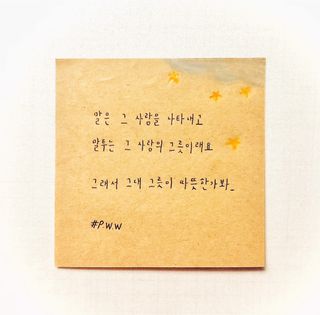 말은 그 사람을 나타내고
말투는 그 사람의 그릇이래요
그래서 그대 그릇이 따뜻한가봐_
#P.W.W